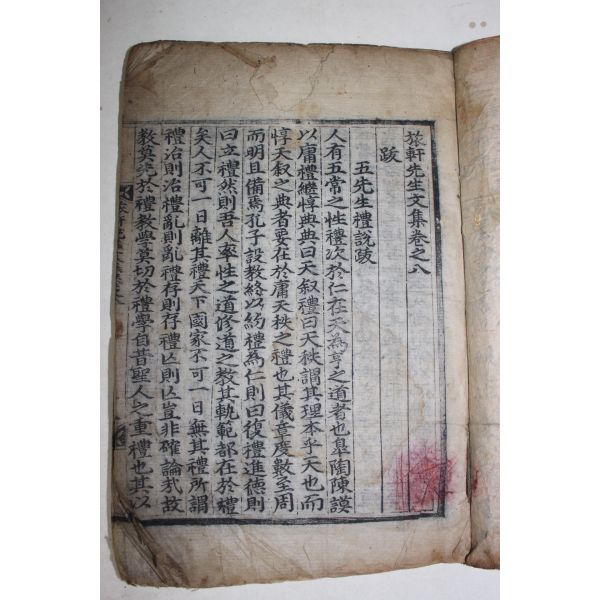 旅軒先生文集卷之八
跋
五先生禮說跋
人有五常之性禮次於仁在天為亨之道者也皐陶陳謨
以庸禮繼惇典典曰天叙禮曰天秩謂其理本乎天也而
惇天叙之典者要在於庸天秩之禮也其儀章度數至周
而明且備焉孔子設教終以約禮為仁則曰復禮進德則
曰立禮然則吾人率性之道修道之教其軌範都在於禮
矣人不可一日離其禮天下國家不可一日無其禮所謂
禮治則治禮亂則亂禮存則存禮亡則亡豈非確論哉故
教莫先於禮教學莫切於禮學自昔聖人之重禮也其以